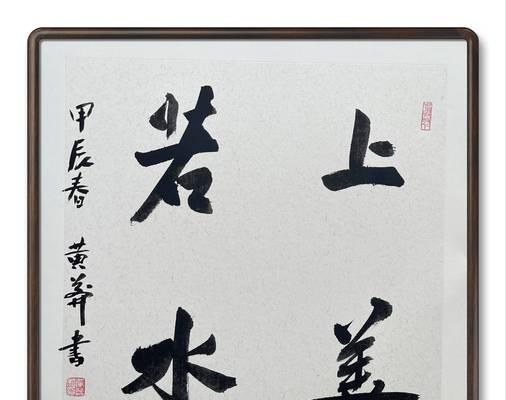 上善
若水
甲辰春 黄莽書